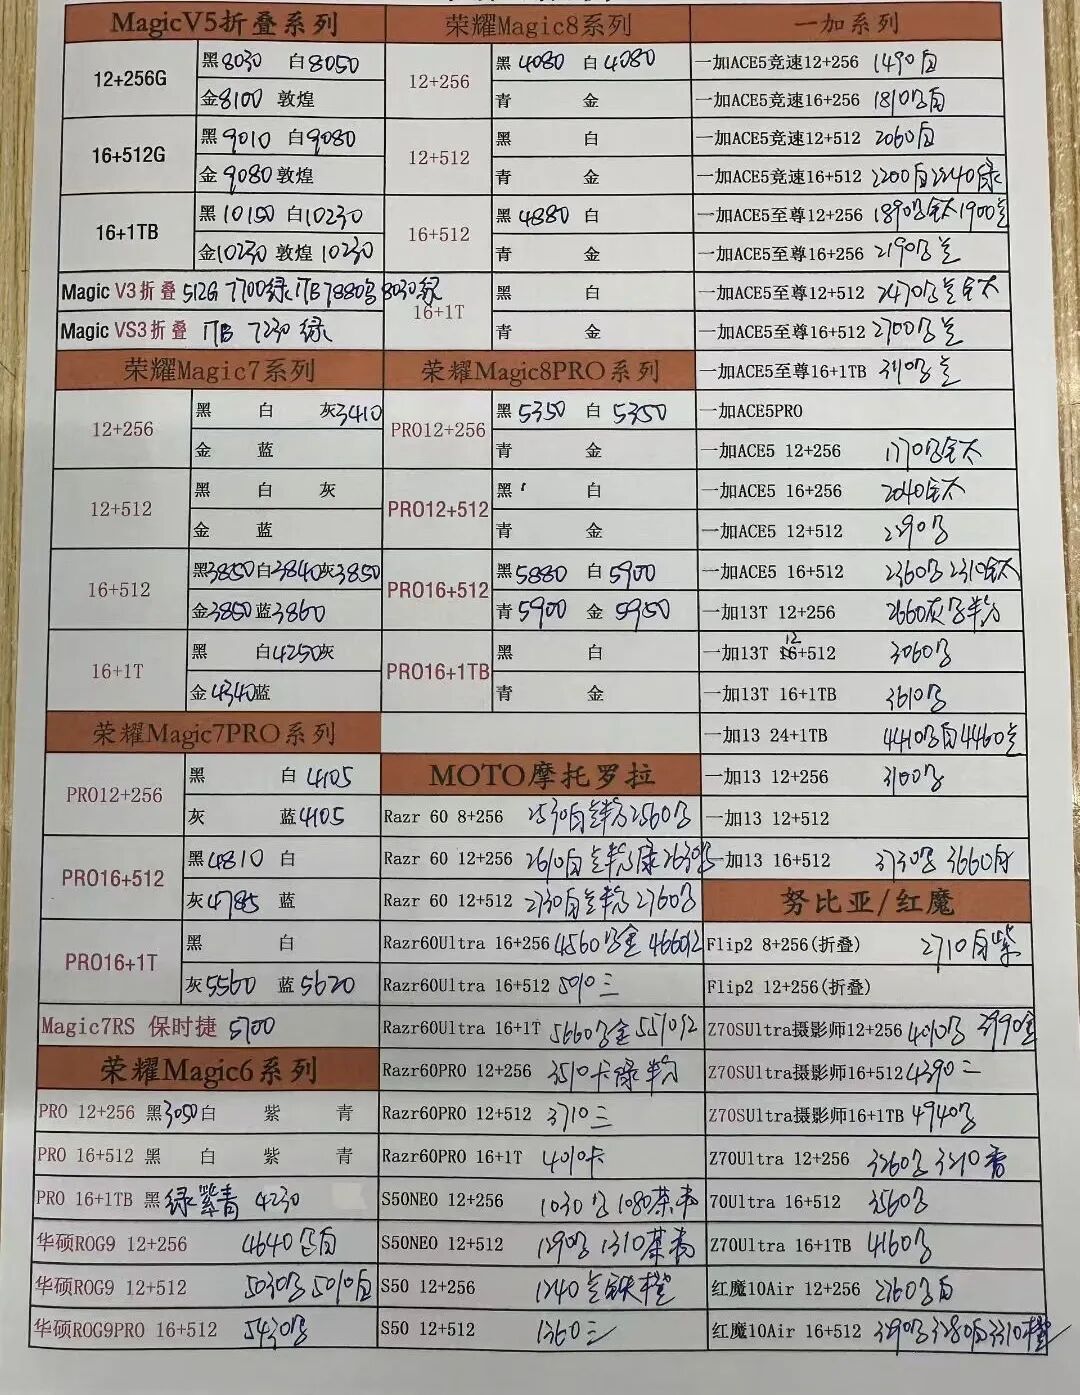 MagicV5折叠系列
12+256G
黑8030 白8050
金8100 敦煌
16+512G
黑9010 白9080
金9080敦煌
16+1TB
黑10150 白10230
金10230 敦煌 10230
Magic V3折叠 512G 7700绿 1TB 7880 8030绿
Magic VS3折叠 1TB 7230 绿
荣耀Magic7系列
12+256
黑 白 灰3410
金 蓝
12+512
黑 白 灰
金 蓝
16+512
黑3850白3840灰3850
金3850蓝3860
16+1T
黑 白4250灰
金4340蓝
荣耀Magic7PRO系列
PRO12+256
黑 白 4105
灰 蓝4105
PRO16+512
黑4810 白
灰4785 蓝
PRO16+1T
黑 白
灰5560 蓝5620
Magic7RS 保时捷 5700
荣耀Magic6系列
PRO 12+256 黑3050白 紫 青
PRO 16+512 黑 白 紫 青
PRO 16+1TB 黑 绿紫青 4230
华硕ROG9 12+256 4640 白
华硕ROG9 12+512 5030 5010白
华硕ROG9PRO 16+512 5430
荣耀Magic8系列
12+256
黑 4080 白 4080
青 金
12+512
黑 白
青 金
16+512
黑 4880 白
青 金
16+1T
黑 白
青 金
荣耀Magic8PRO系列
PRO12+256
黑 5350 白 5350
青 金
PRO12+512
黑 白
青 金
PRO16+512
黑5880 白5900
青5900 金 5950
PRO16+1TB
黑 白
青 金
MOTO摩托罗拉
Razr 60 8+256 2530白 2560
Razr 60 12+256 2610白
Razr 60 12+512 2730白 2760
Razr60Ultra 16+256 4560 金 4660
Razr60Ultra 16+512 5010 三
Razr60Ultra 16+1T 5660 金 5570
Razr60PRO 12+256 3510 卡绿
Razr60PRO 12+512 3710 三
Razr60PRO 16+1T 4010卡
S50NEO 12+256 1030 1080茶
S50NEO 12+512 1290 1310茶青
S50 12+256 1240
S50 12+512 1360三
一加系列
一加ACE5竞速12+256 1490白
一加ACE5竞速16+256 1810 白
一加ACE5竞速12+512 2060白
一加ACE5竞速16+512 2200白2240绿
一加ACE5至尊12+256 1890 钛1900
一加ACE5至尊16+256 2190
一加ACE5至尊12+512 2470
一加ACE5至尊16+512 2700
一加ACE5至尊16+1TB 3110
一加ACE5PRO
一加ACE5 12+256 1770 钛
一加ACE5 16+256 2040钛
一加ACE5 12+512 2290
一加ACE5 16+512 2360 2310钛
一加13T 12+256 2660灰
一加13T 12+512 3060
一加13T 16+1TB 3610
一加13 24+1TB 4410 白4460
一加13 12+256 3100
一加13 12+512
一加13 16+512 3730 3660白
努比亚/红魔
Flip2 8+256(折叠) 2710白紫
Flip2 12+256(折叠)
Z70SUltra摄影师12+256 4010 3990
Z70SUltra摄影师16+512 4390二
Z70SUltra摄影师16+1TB 4940
Z70Ultra 12+256 3260 3210
70Ultra 16+512 3560
Z70Ultra 16+1TB 4160
红魔10Air 12+256 2760 白
红魔10Air 16+512 3290 3280白3310橙